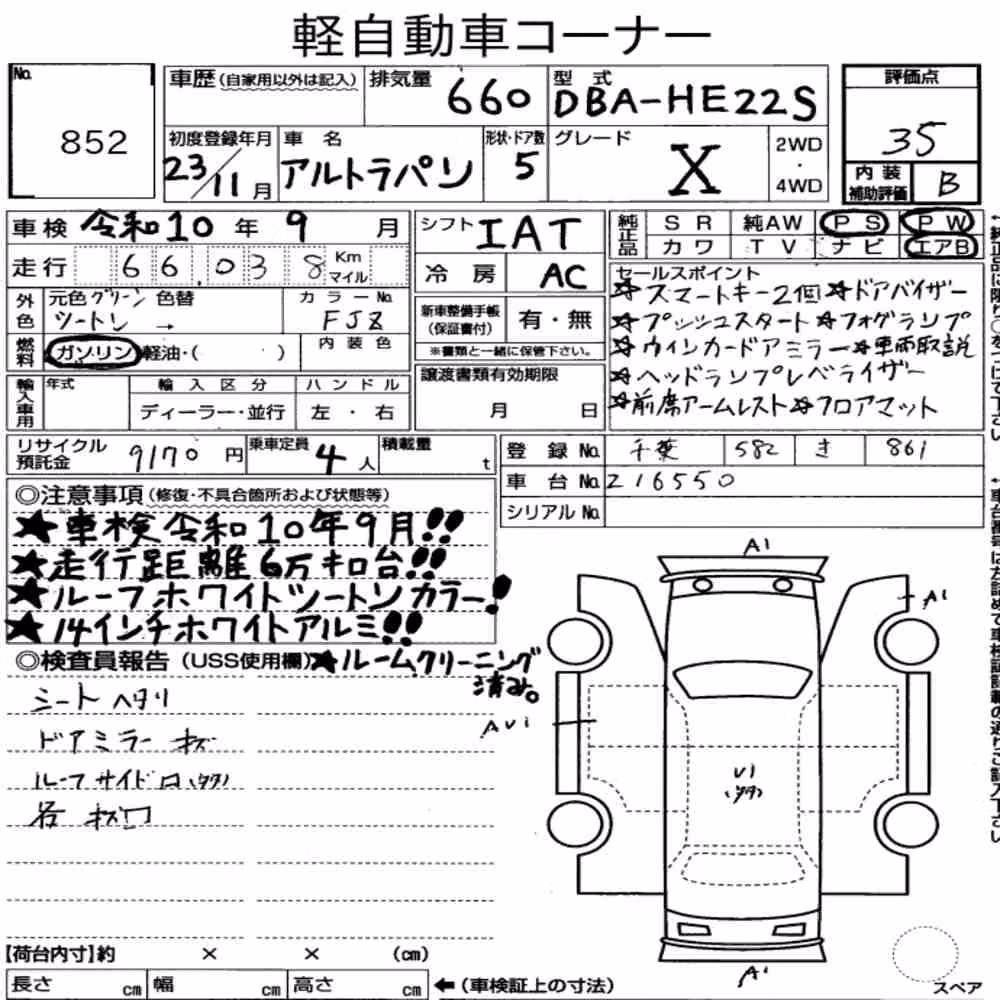 軽自動車コーナー
No. 852
車歴(自家用以外は記入) 排気量 660 型式 DBA-HE22S 評価点 35
初度登録年月 23/11月 車名 アルトラパン 形状・ドア数 5 グレード X 2WD・4WD 内装補助評価 B
車検 令和10年9月 シフト IAT 純正品 SR 純AW PS PW
走行 66,038 Km マイル 冷房 AC カワ TV ナビ エアB
外色 元色 グリーン 色替 カラーNo. FJZ 新車整備手帳(保証書付) 有・無
ツートン →
燃料 ガソリン 軽油・( ) 内装色 ※書類と一緒に保管下さい。
輸入車用 年式 輸入区分 ハンドル 譲渡書類有効期限
ディーラー・並行 左・右 月 日
セールスポイント
☆スマートキー2個☆ドアバイザー
☆プッシュスタート☆フォグランプ
☆ウィンカードアミラー☆車両取説
☆ヘッドランプレベライザー
☆前席アームレスト☆フロアマット
リサイクル預託金 9170円 乗車定員 4人 積載量 t
登録No. 千葉 582 き 861
車台No. 216550
シリアルNo.
◎注意事項(修復・不具合箇所および状態等)
★車検令和10年9月!!
★走行距離6万キロ台!!
★ルーフホワイトツートンカラー!
★14インチホワイトアルミ!!
◎検査員報告(USS使用欄)★ルームクリーニング
済み。
シートヘタリ
ドアミラー キズ
ルーフサイド
各
A1
A1
AU1
U1
A1
【荷台内寸】約 × × (cm)
長さ cm 幅 cm 高さ cm ←(車検証上の寸法)
スペア